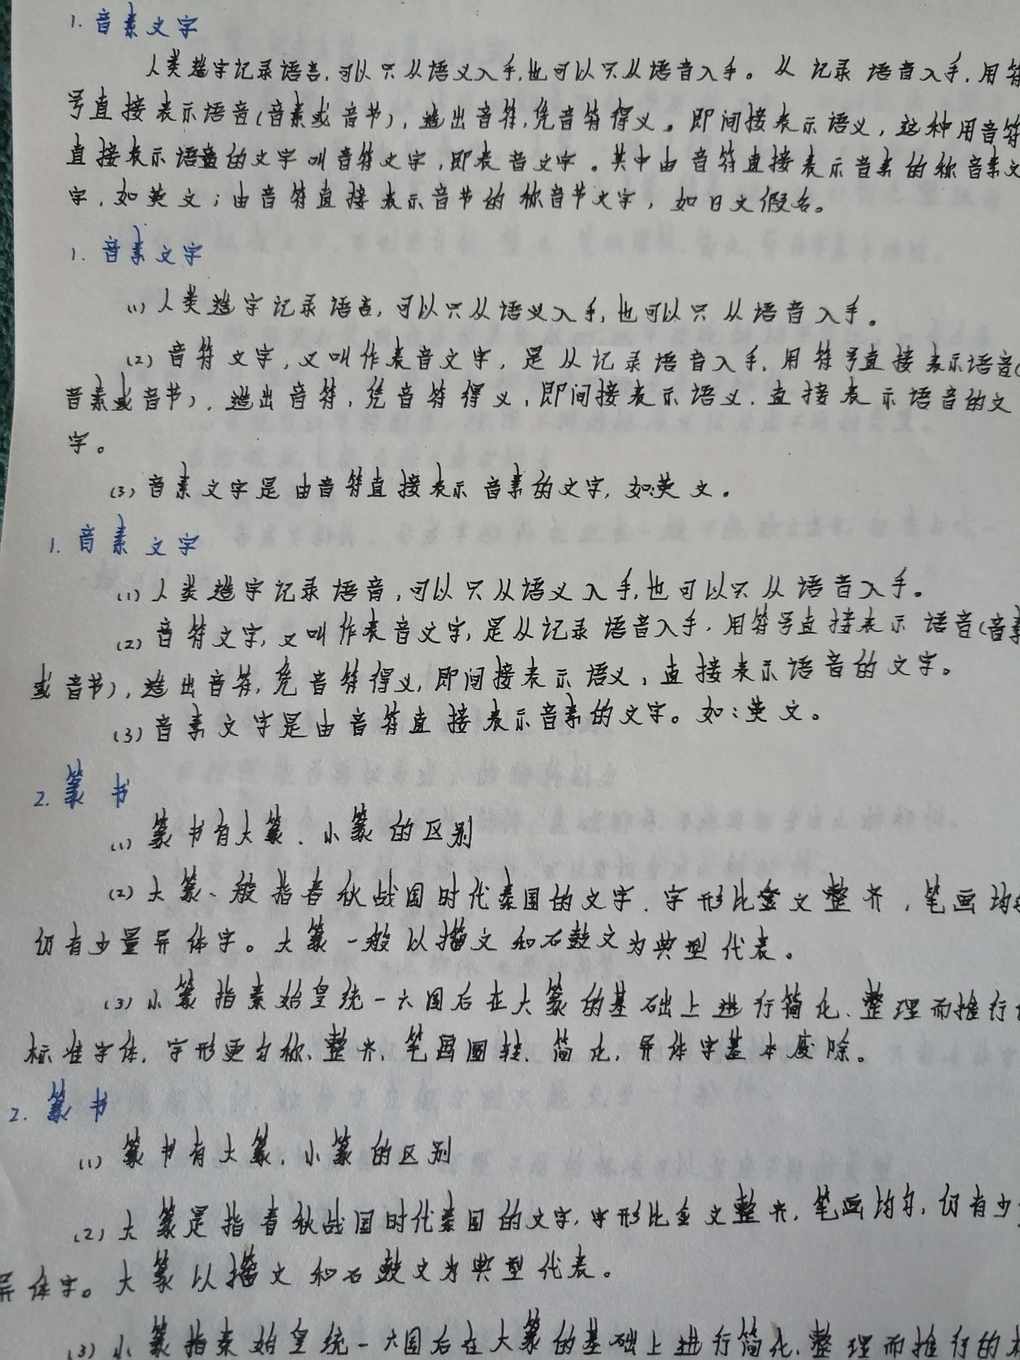 1. 音素文字
人类造字记录语言,可以只从语义入手,也可以只从语音入手。从记录语音入手,用符
号直接表示语音(音素或音节),造出音符,凭音符得义。即间接表示语义,这种用音符
直接表示语音的文字叫音符文字,即表音文字。其中由音符直接表示音素的称音素文
字,如英文;由音符直接表示音节的称音节文字,如日文假名。
1. 音素文字
(1)人类造字记录语言,可以只从语义入手,也可以只从语音入手。
(2)音符文字,又叫作表音文字,是从记录语音入手,用符号直接表示语音(
音素或音节),造出音符,凭音符得义,即间接表示语义,直接表示语音的文
字。
(3)音素文字是由音符直接表示音素的文字,如:英文。
1. 音素文字
(1)人类造字记录语音,可以只从语义入手,也可以只从语音入手。
(2)音符文字,又叫作表音文字,是从记录语音入手,用符号直接表示语音(音素
或音节),造出音符,凭音符得义,即间接表示语义,直接表示语音的文字。
(3)音素文字是由音符直接表示音素的文字。如:英文。
2. 篆书
(1)篆书有大篆、小篆的区别
(2)大篆一般指春秋战国时代秦国的文字,字形比金文整齐,笔画均匀
仍有少量异体字。大篆一般以籀文和石鼓文为典型代表。
(3)小篆指秦始皇统一六国后在大篆的基础上进行简化、整理而推行的
标准字体,字形更匀称、整齐,笔画圆转、简化,异体字基本废除。
2. 篆书
(1)篆书有大篆、小篆的区别
(2)大篆是指春秋战国时代秦国的文字,字形比金文整齐,笔画均匀,仍有少量
异体字。大篆以籀文和石鼓文为典型代表。
(3)小篆指秦始皇统一六国后在大篆的基础上进行简化、整理而推行的标